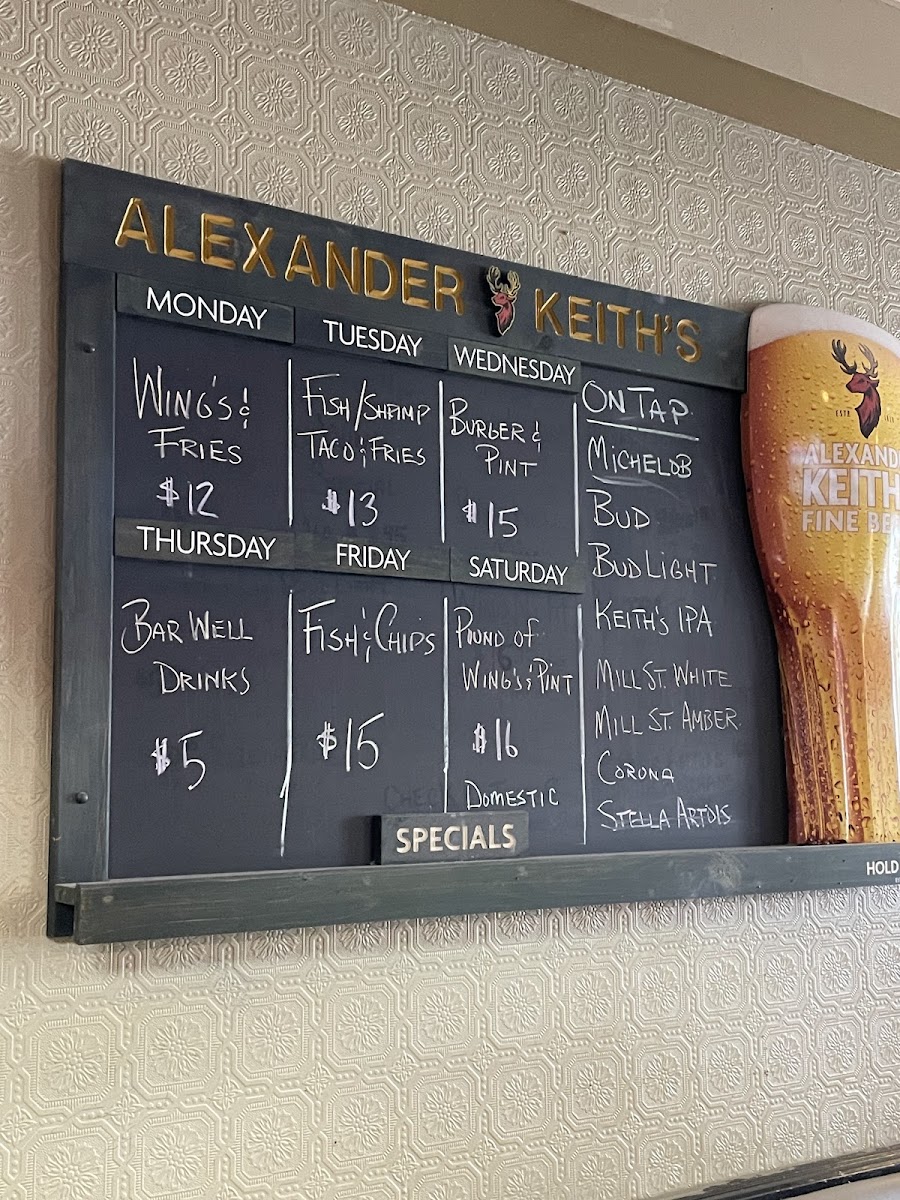 ALEXANDER KEITH'S
MONDAY
WING'S &
FRIES
$12
TUESDAY
FISH/SHRIMP
TACO & FRIES
$13
WEDNESDAY
BURGER &
PINT
$15
THURSDAY
BAR WELL
DRINKS
$5
FRIDAY
FISH & CHIPS
$15
SATURDAY
POUND OF
WING'S & PINT
$16
DOMESTIC
SPECIALS
ON TAP
MICHELOB
BUD
BUD LIGHT
KEITH'S IPA
MILL ST. WHITE
MILL ST. AMBER
CORONA
STELLA ARTOIS
ALEXAND
KEITH
FINE BE
HOLD